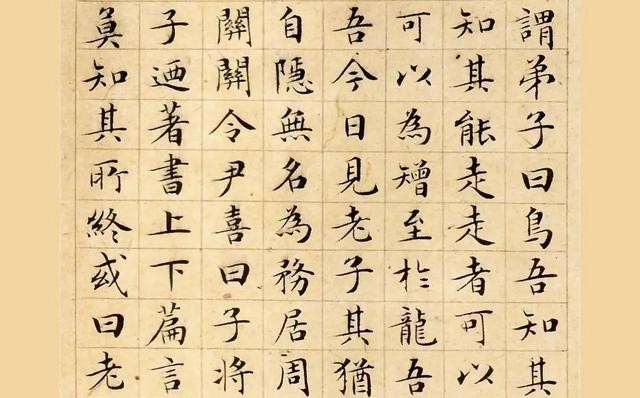 謂弟子曰鳥吾知其
知其能走走者可以
可以為矰至於龍吾
吾今日見老子其猶
自隱無名為務居周
關關令尹喜曰子將
子迺著書上下篇言
莫知其所終或曰老